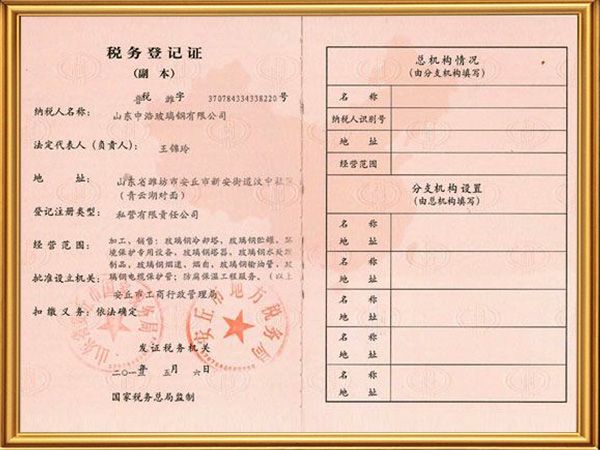 税务登记证
(副 本)
鲁税 潍字 370784334338220 号
纳税人名称: 山东中浩玻璃钢有限公司
法定代表人(负责人): 王锦玲
地 址: 山东省潍坊市安丘市新安街道汶中社区
(青云湖对面)
登记注册类型: 私营有限责任公司
经营范围: 加工、销售:玻璃钢冷却塔,玻璃钢贮罐,环
境保护专用设备,玻璃钢塔器,玻璃钢水处理
制品,玻璃钢烟道、烟囱,玻璃钢输油管,玻
璃钢电缆保护管;防腐保温工程服务。(以上
批准设立机关: 安丘市工商行政管理局
扣缴义务: 依法确定
发证税务机关
二〇一五 年 五 月 六 日
国家税务总局监制
安丘市地方税务局
总机构情况
(由分支机构填写)
名 称
纳税人识别号
地 址
经营范围
分支机构设置
(由总机构填写)
名 称
地 址
名 称
地 址
名 称
地 址
名 称
地 址
名 称
地 址